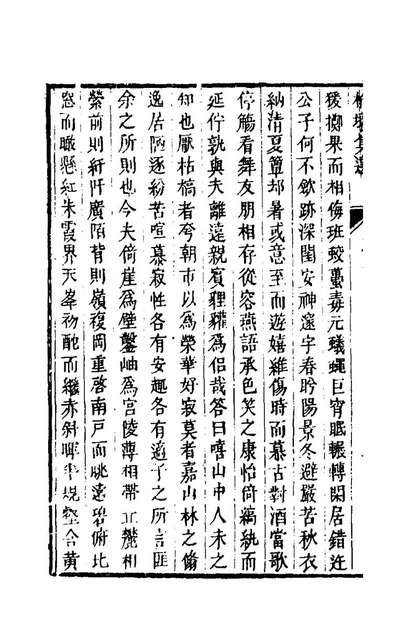 猨擲果而相侮班蛟蠆毒元蟻蠅巨宵眠輾轉閑居錯迕
公子何不歛跡深閨安神邃宇春昤陽景冬避嚴苦秋衣
納清夏簟却暑或意至而遊嬉雖傷時而慕古對酒當歌
停觴看舞友朋相存從容燕語承色笑之康怡倚縞紈而
延佇孰與夫離遠親賓狸獾爲侶哉答曰嘻山中人未之
知也厭枯槁者夸朝市以爲榮華好寂莫者嘉山林之脩
逸居陋逐紛苦喧慕寂性各有安趣各有適子之所言匪
余之所則也今夫倚崖爲壁鑿岫爲宮陵薄相帶丘麓相
縈前則紆阡廣陌背則嶺複岡重啓南戶而眺遠碧俯北
窓而矙懸紅朱霞界天峯初酡而繼赤斜暉半規壑合黃